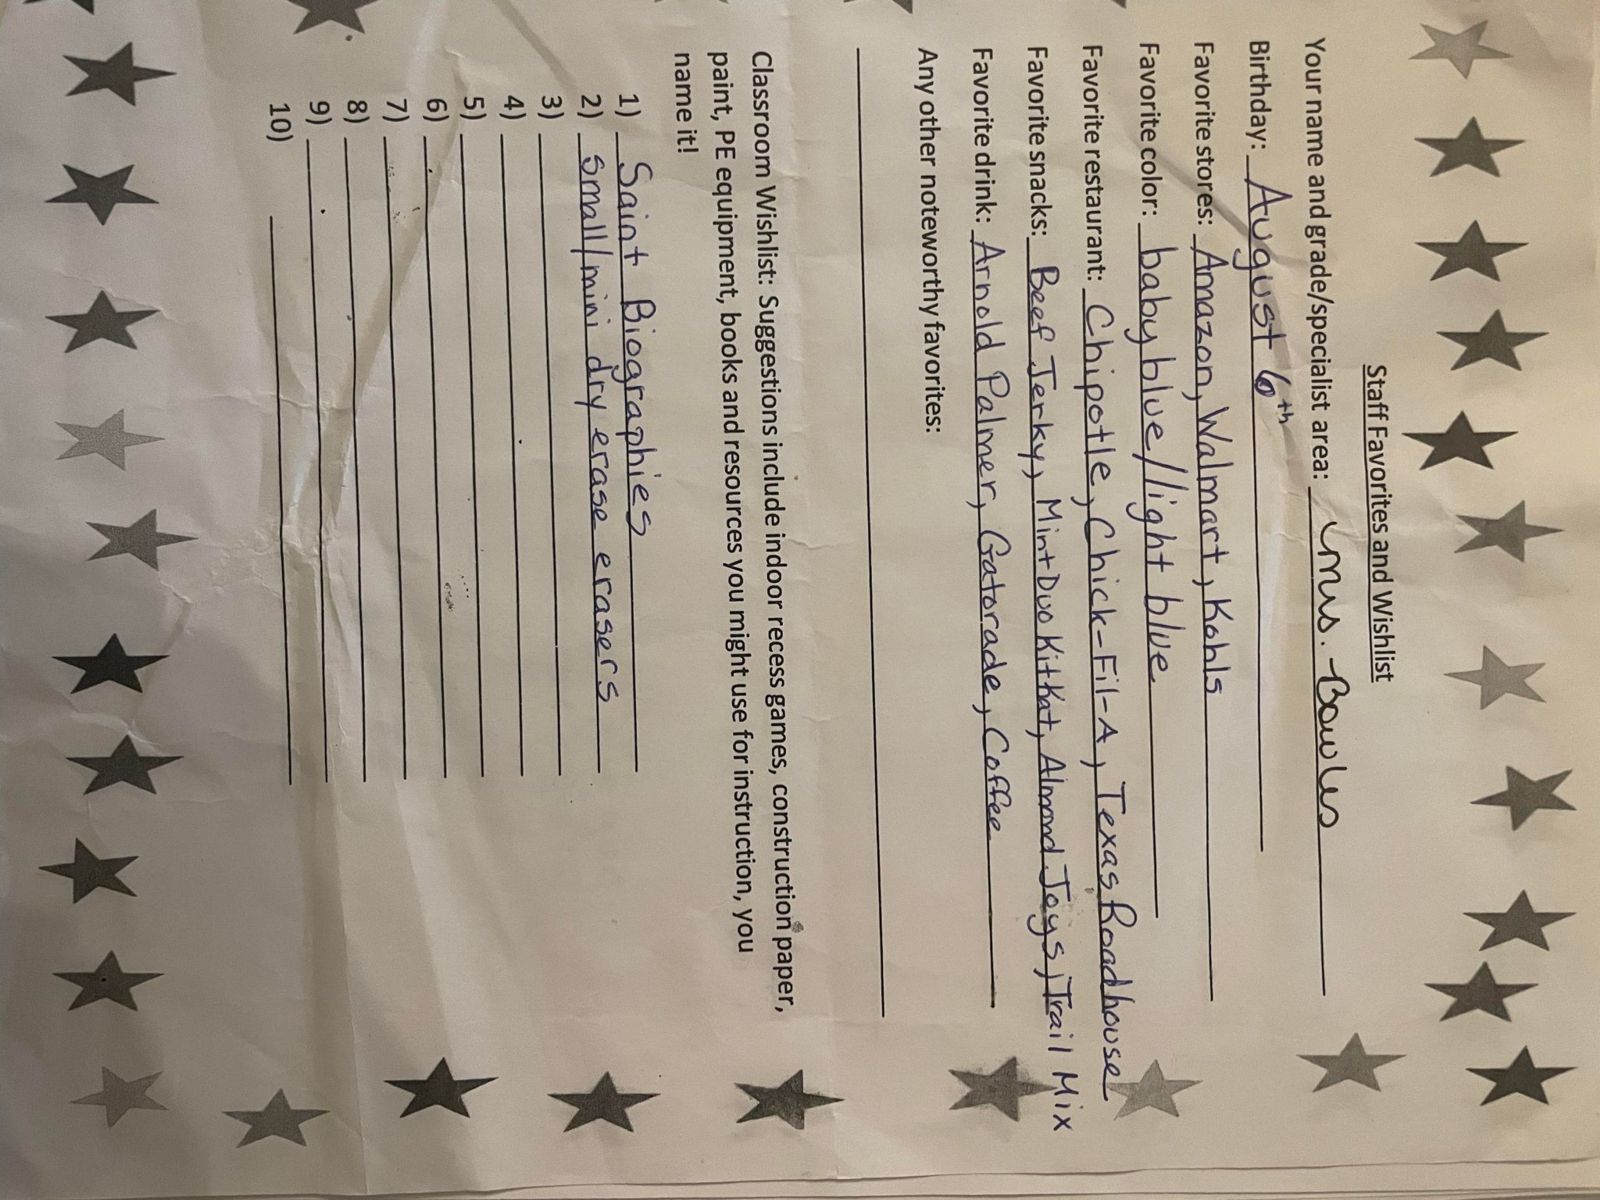 Staff Favorites and Wishlist
Your name and grade/specialist area: Mrs. Bowles
Birthday: August 6th
Favorite stores: Amazon, Walmart, Kohls
Favorite color: baby blue/light blue
Favorite restaurant: Chipotle, Chick-Fil-A, Texas Roadhouse
Favorite snacks: Beef Jerky, Mint Duo Kit Kat, Almond Joys, Trail Mix
Favorite drink: Arnold Palmer, Gatorade, Coffee
Any other noteworthy favorites:
Classroom Wishlist: Suggestions include indoor recess games, construction paper,
paint, PE equipment, books and resources you might use for instruction, you
name it!
1) Saint Biographies
2) small/mini dry erase erasers
3)
4)
5)
6)
7)
8)
9)
10)